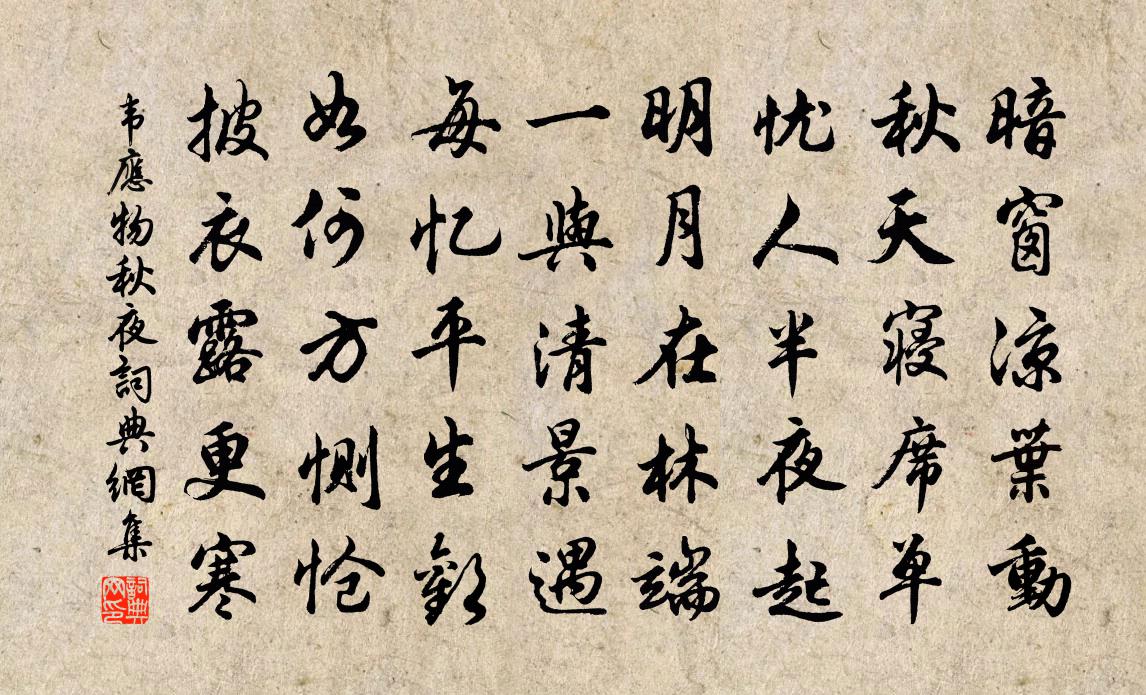 暗窗凉葉動
秋天寝席单
忧人半夜起
明月在林端
一與清景遇
每忆平生歡
如何方恻怆
披衣露更寒
韦應物秋夜詞典網集
詞典网印